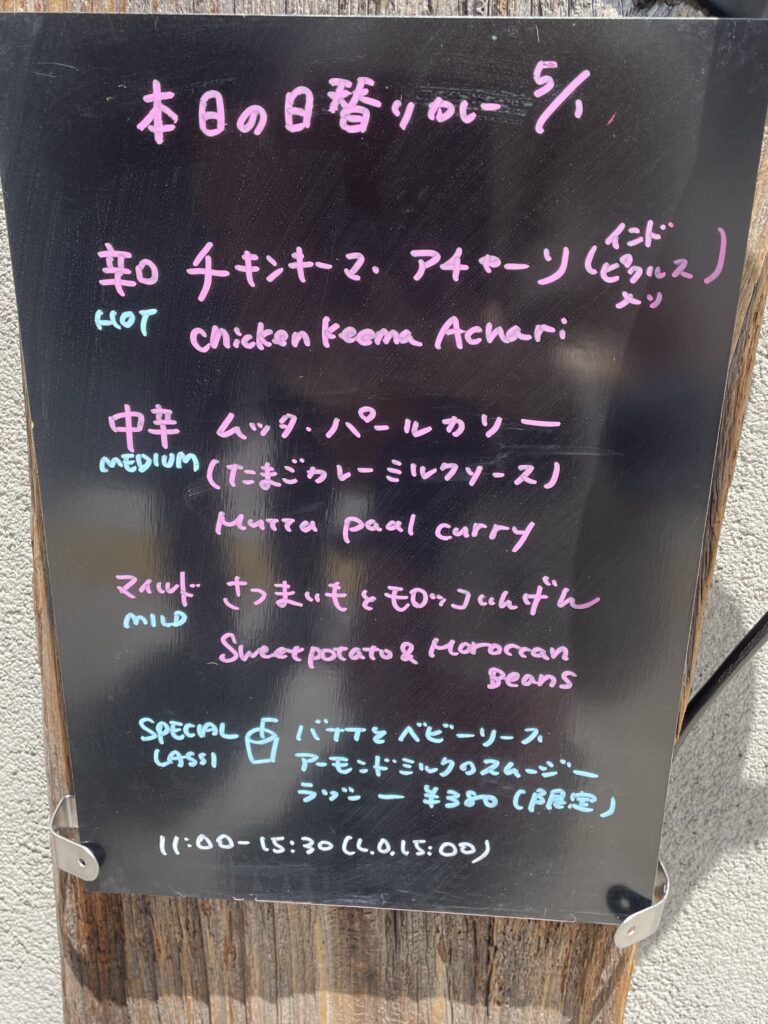 本日の日替りカレー 5/1
辛口 チキンキーマ・アチャーリ(インドピクルス入り)
HOT chicken keema Achari
中辛 ムッタ・パールカリー
MEDIUM (たまごカレーミルクソース)
Mutta paal curry
マイルド さつまいもとモロッコいんげん
MILD
Sweetpotato & Moroccan
Beans
SPECIAL LASSI バナナとベビーリーフ
アーモンドミルクのスムージー
ラッシー ¥380 (限定)
11:00-15:30 (L.O.15:00)